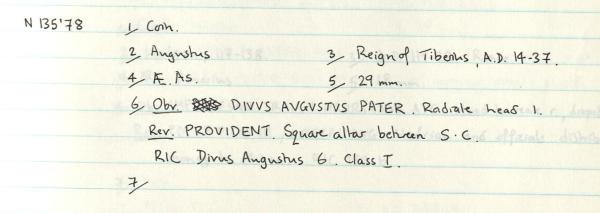 N 135'78 1/ Coin.
2/ Augustus 3/ Reign of Tiberius, A.D. 14-37.
4/ Æ As. 5/ 29 mm.
6/ Obv. DIVVS AVGVSTVS PATER. Radiate head l.
Rev. PROVIDENT. Square altar between S.C.
RIC Divus Augustus 6. Class I.
7/